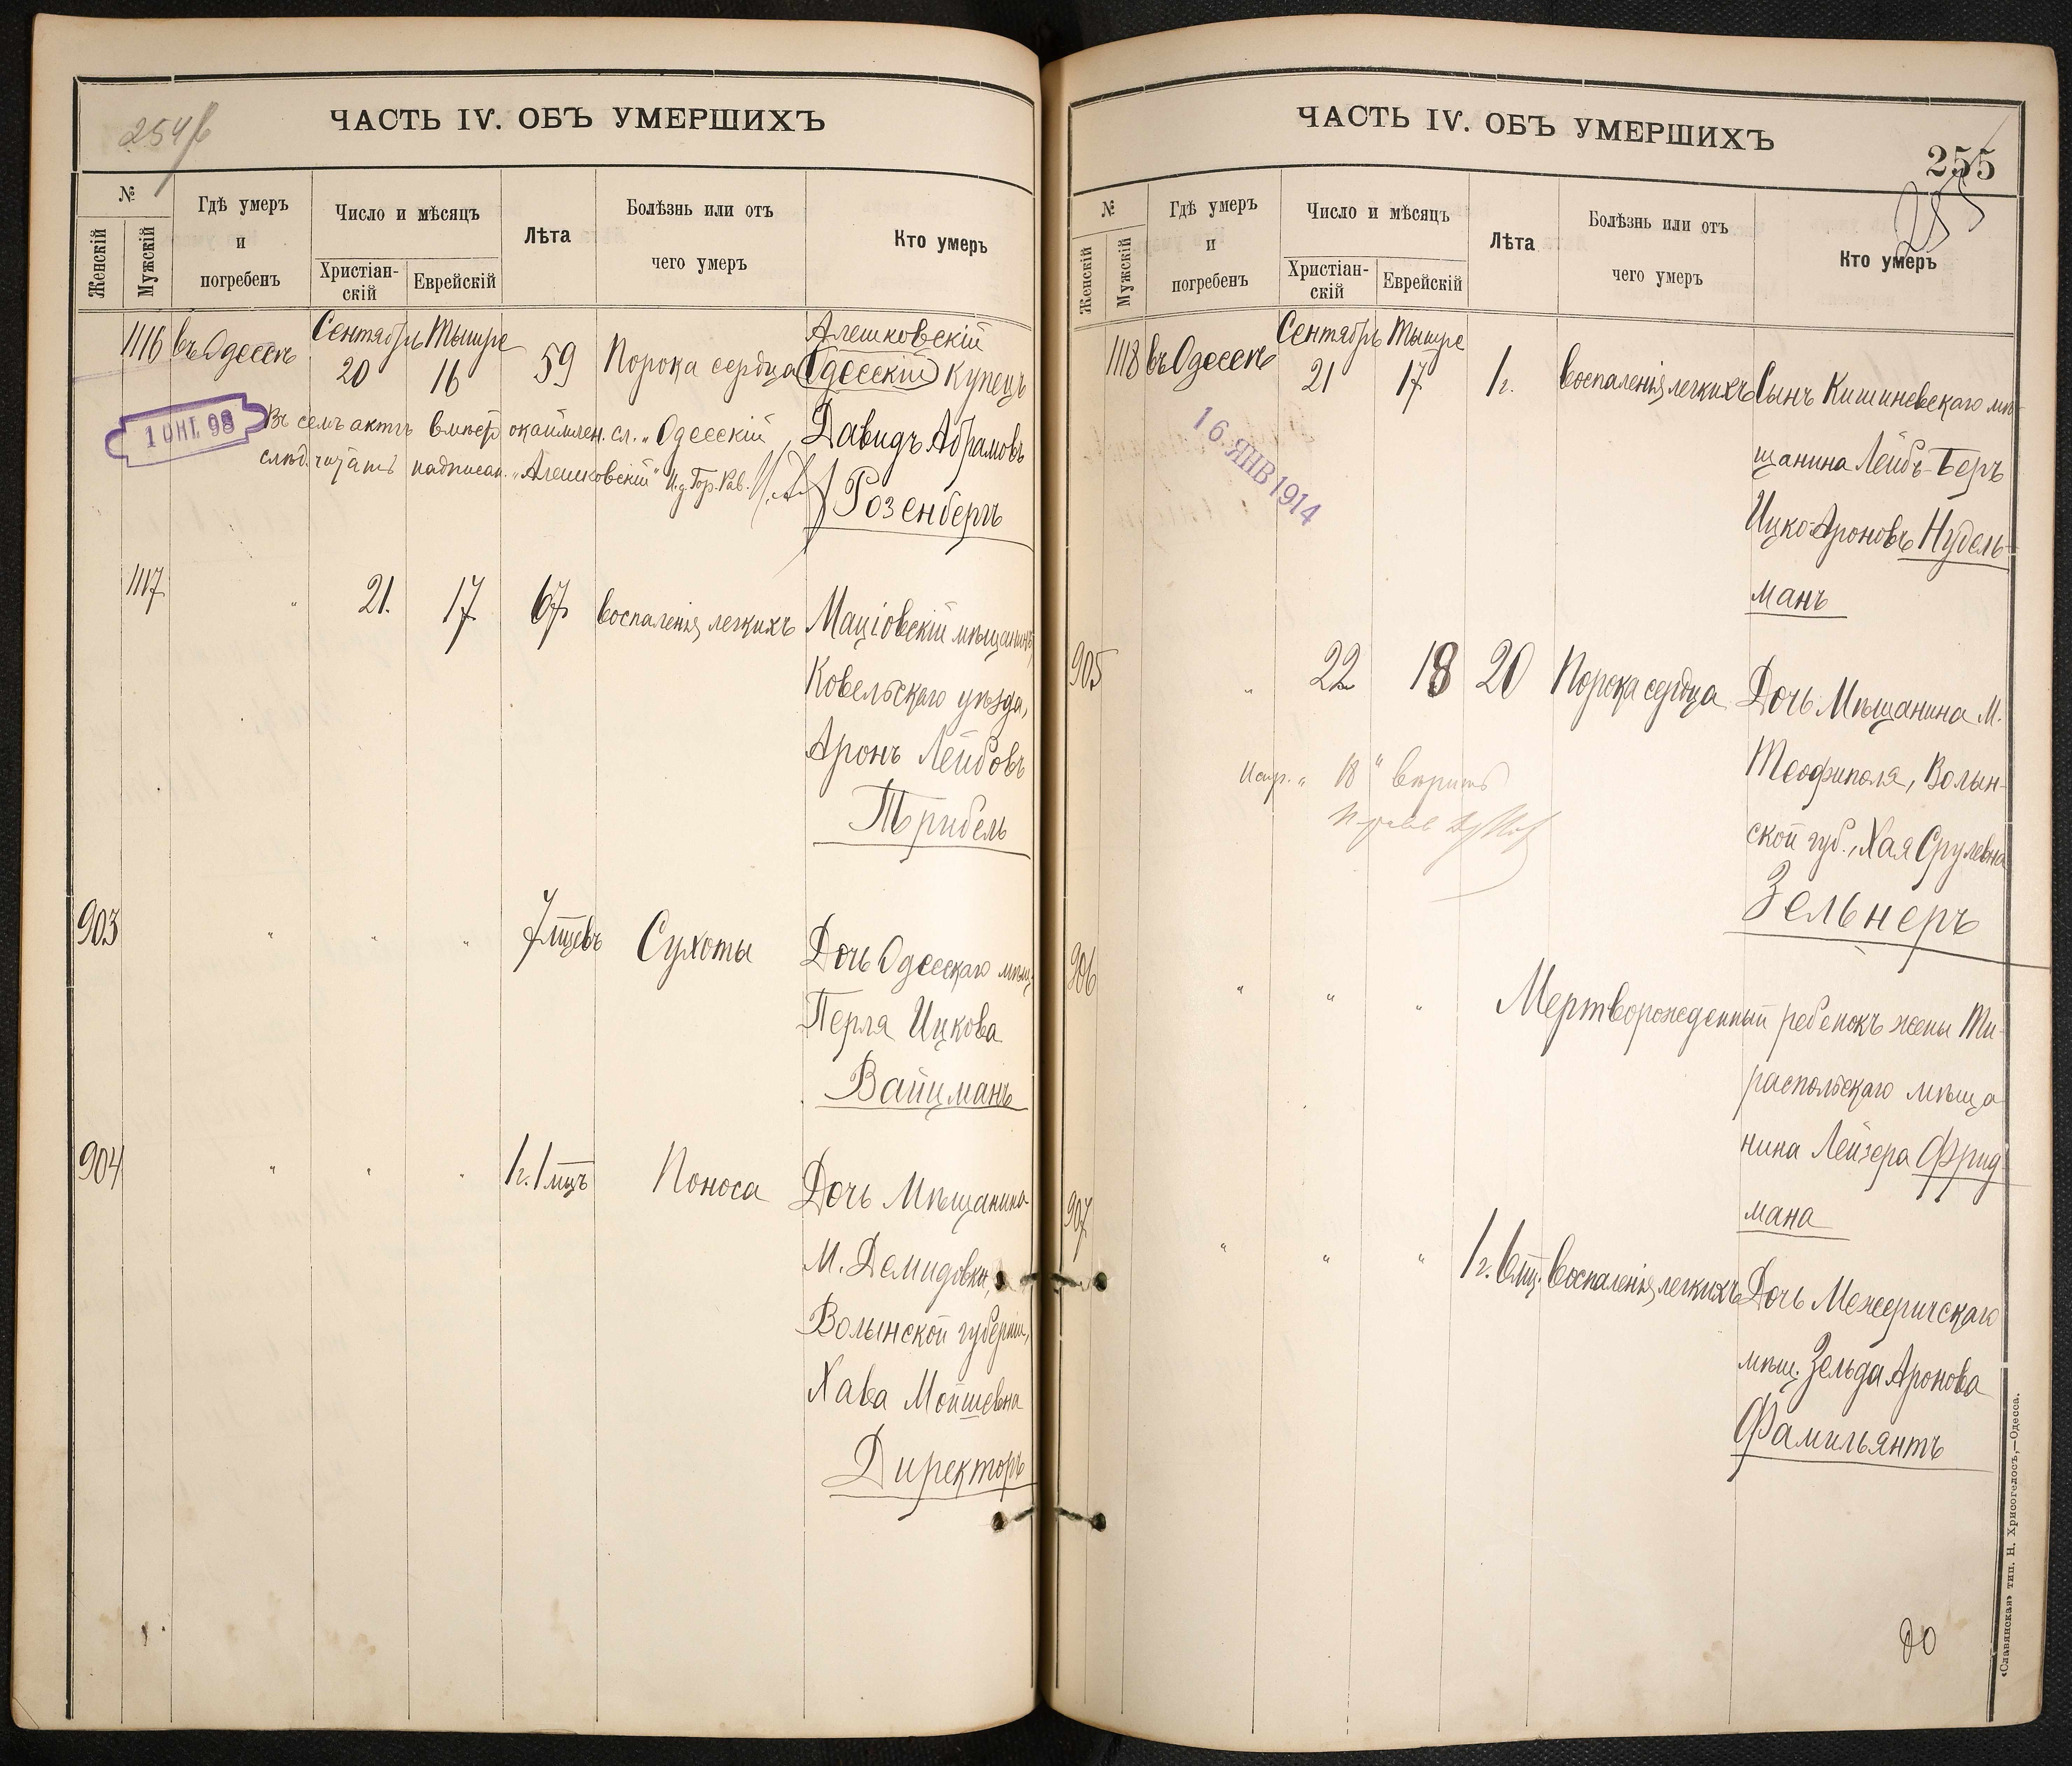 254б
ЧАСТЬ IV. ОБЪ УМЕРШИХЪ
№
Женскій
Мужскій
Гдѣ умеръ
и
погребенъ
Число и мѣсяцъ
Христіан-
скій
Еврейскій
Лѣта
Болѣзнь или отъ
чего умеръ
Кто умеръ
Сентябрь Тышре
Алешковскій
1116 въ Одессѣ 20 16 59 Порока сердца Одесскій купецъ
1 ОКТ. 98
Въ семъ актѣ вмѣсто окаймлен. сл. „Одесскій"
Давидъ Абрамовъ
слѣд. читать надписан. „Алешковскій" И. д. Гор. Рав.
Розенбергъ
1117 " 21. 17 67 Воспаленія легкихъ Маціовскій мѣщанинъ
Ковельскаго уѣзда,
Аронъ Лейбовъ
Трибель
903 " " " 7 мцевъ Сухоты Дочь Одесскаго мѣщ.
Перля Ицкова
Вайцманъ
904 " " " 1 г. 1 мцъ Поноса Дочь Мѣщанина
М. Демидовки,
Волынской губерніи,
Хава Мойшевна
Директоръ
ЧАСТЬ IV. ОБЪ УМЕРШИХЪ
255
255
№
Женскій
Мужскій
Гдѣ умеръ
и
погребенъ
Число и мѣсяцъ
Христіан-
скій
Еврейскій
Лѣта
Болѣзнь или отъ
чего умеръ
Кто умеръ
Сентябрь Тышре
1118 въ Одессѣ 21 17 1 г. Воспаленія легкихъ Сынъ Кишиневскаго мѣ-
16 ЯНВ 1914
щанина Лейбъ-Беръ
Ицко-Ароновъ Нудель-
манъ
905 " 22 18 20 Порока сердца Дочь Мѣщанина М.
Теофиполя, Волын-
Испр. „18" вѣрить
ской губ., Хая Срулевна
Зельнеръ
906 " " " Мертворожденный ребенокъ жены Ти-
распольскаго мѣща
нина Лейзера Фрид-
мана
907 " " " 1 г. 6 мц. Воспаленія легкихъ Дочь Межеричскаго
мѣщ. Зельда Аронова
Фамильянтъ
«Славянская» тип. Н. Хрисогелосъ,—Одесса.